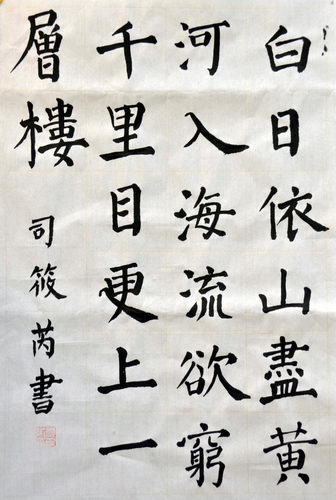 白日依山盡黃
河入海流欲窮
千里目更上一
層樓
司筱芮書